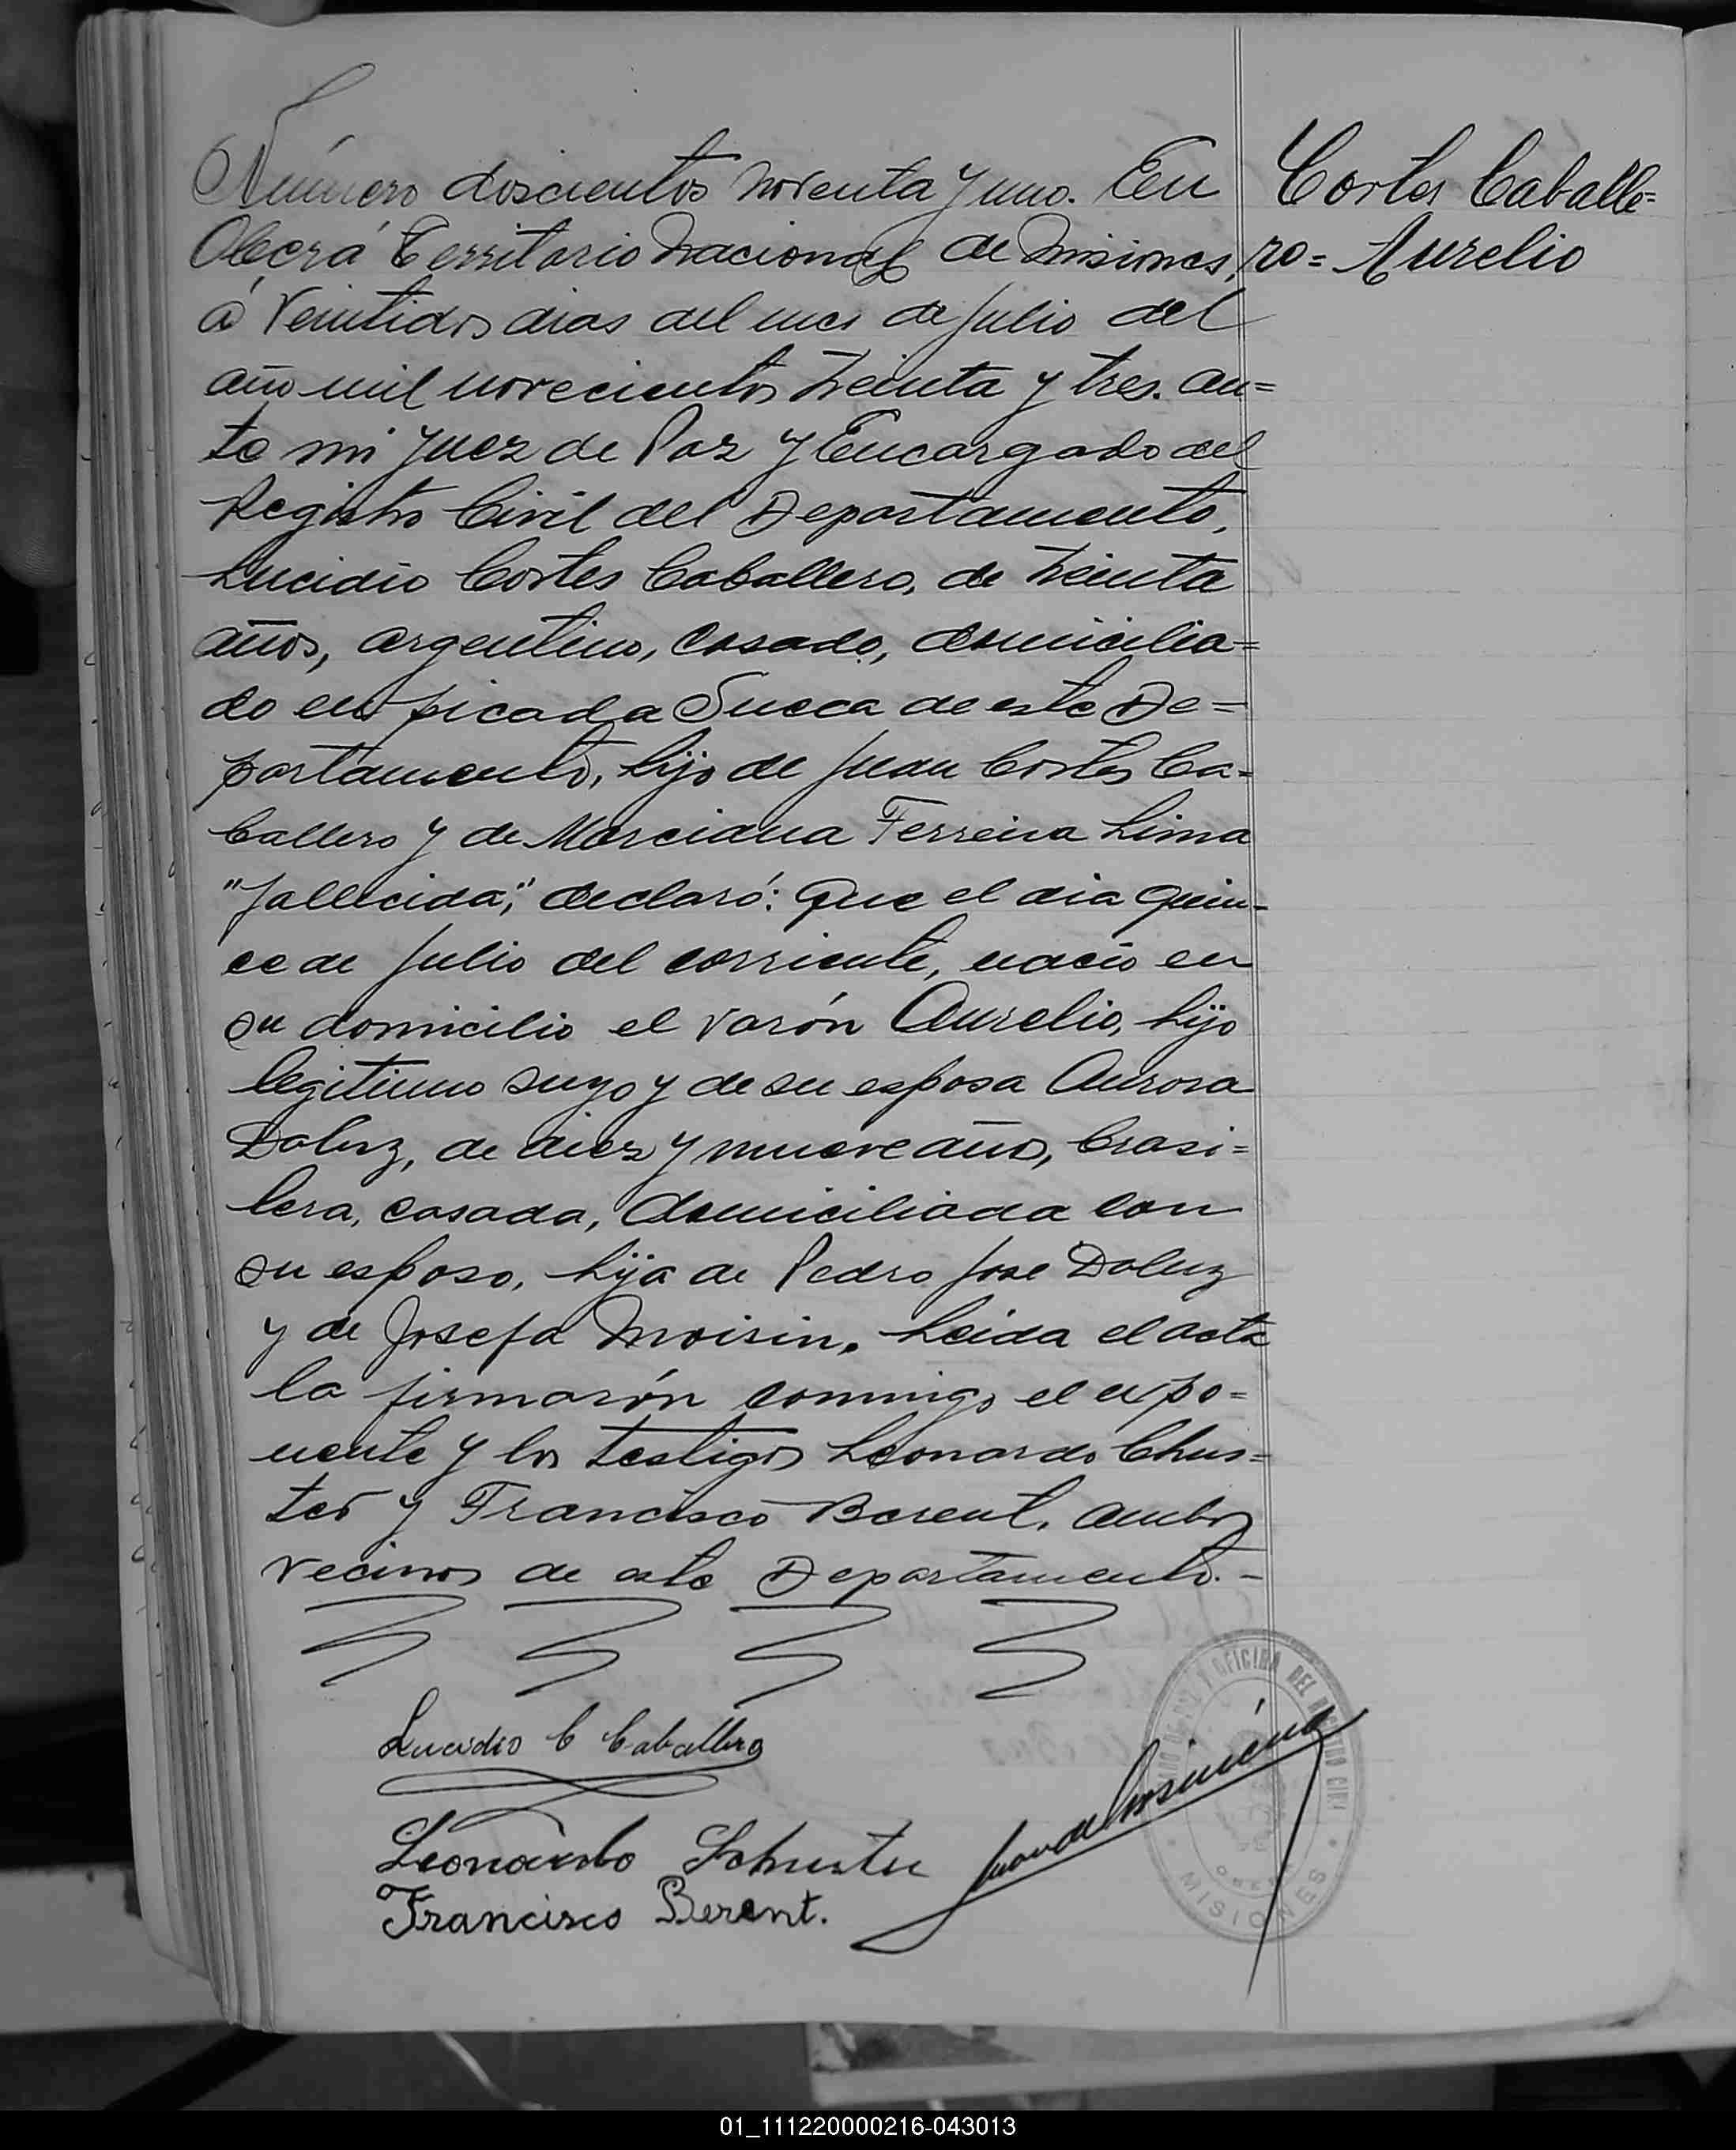 Número doscientos noventa y uno. En
Oberá Territorio Nacional de Misiones,
á veintidos dias del mes de Julio del
año mil novecientos treinta y tres. an=
te mi Juez de Paz y Encargado del
Registro Civil del Departamento,
Lucidio Cortes Caballero, de treinta
años, argentino, casado, domicilia=
do en picada Sueca de este De=
partamento, hijo de Juan Cortes Ca=
ballero y de Marciana Ferreira Lima
"fallecida", declaró: Que el dia quin=
ce de Julio del corriente, nació en
su domicilio el varón Aurelio, hijo
legitimo suyo y de su esposa Aurora
Daluz, de diez y nueve años, brasi=
lera, casada, domiciliada con
su esposo, hija de Pedro Jose Daluz
y de Josefa Moisin. Leida el acta
la firmarón conmigo el expo=
nente y los testigos Leonardo Chus=
ter y Francisco Berent, ambos
vecinos de este Departamento.-
Cortes Caballe=
ro= Aurelio
Lucidio C Caballero
Leonardo Schuster
Francisco Berent.
OFICINA DEL REGISTRO CIVIL
OBERA
MISIONES
01_111220000216-043013